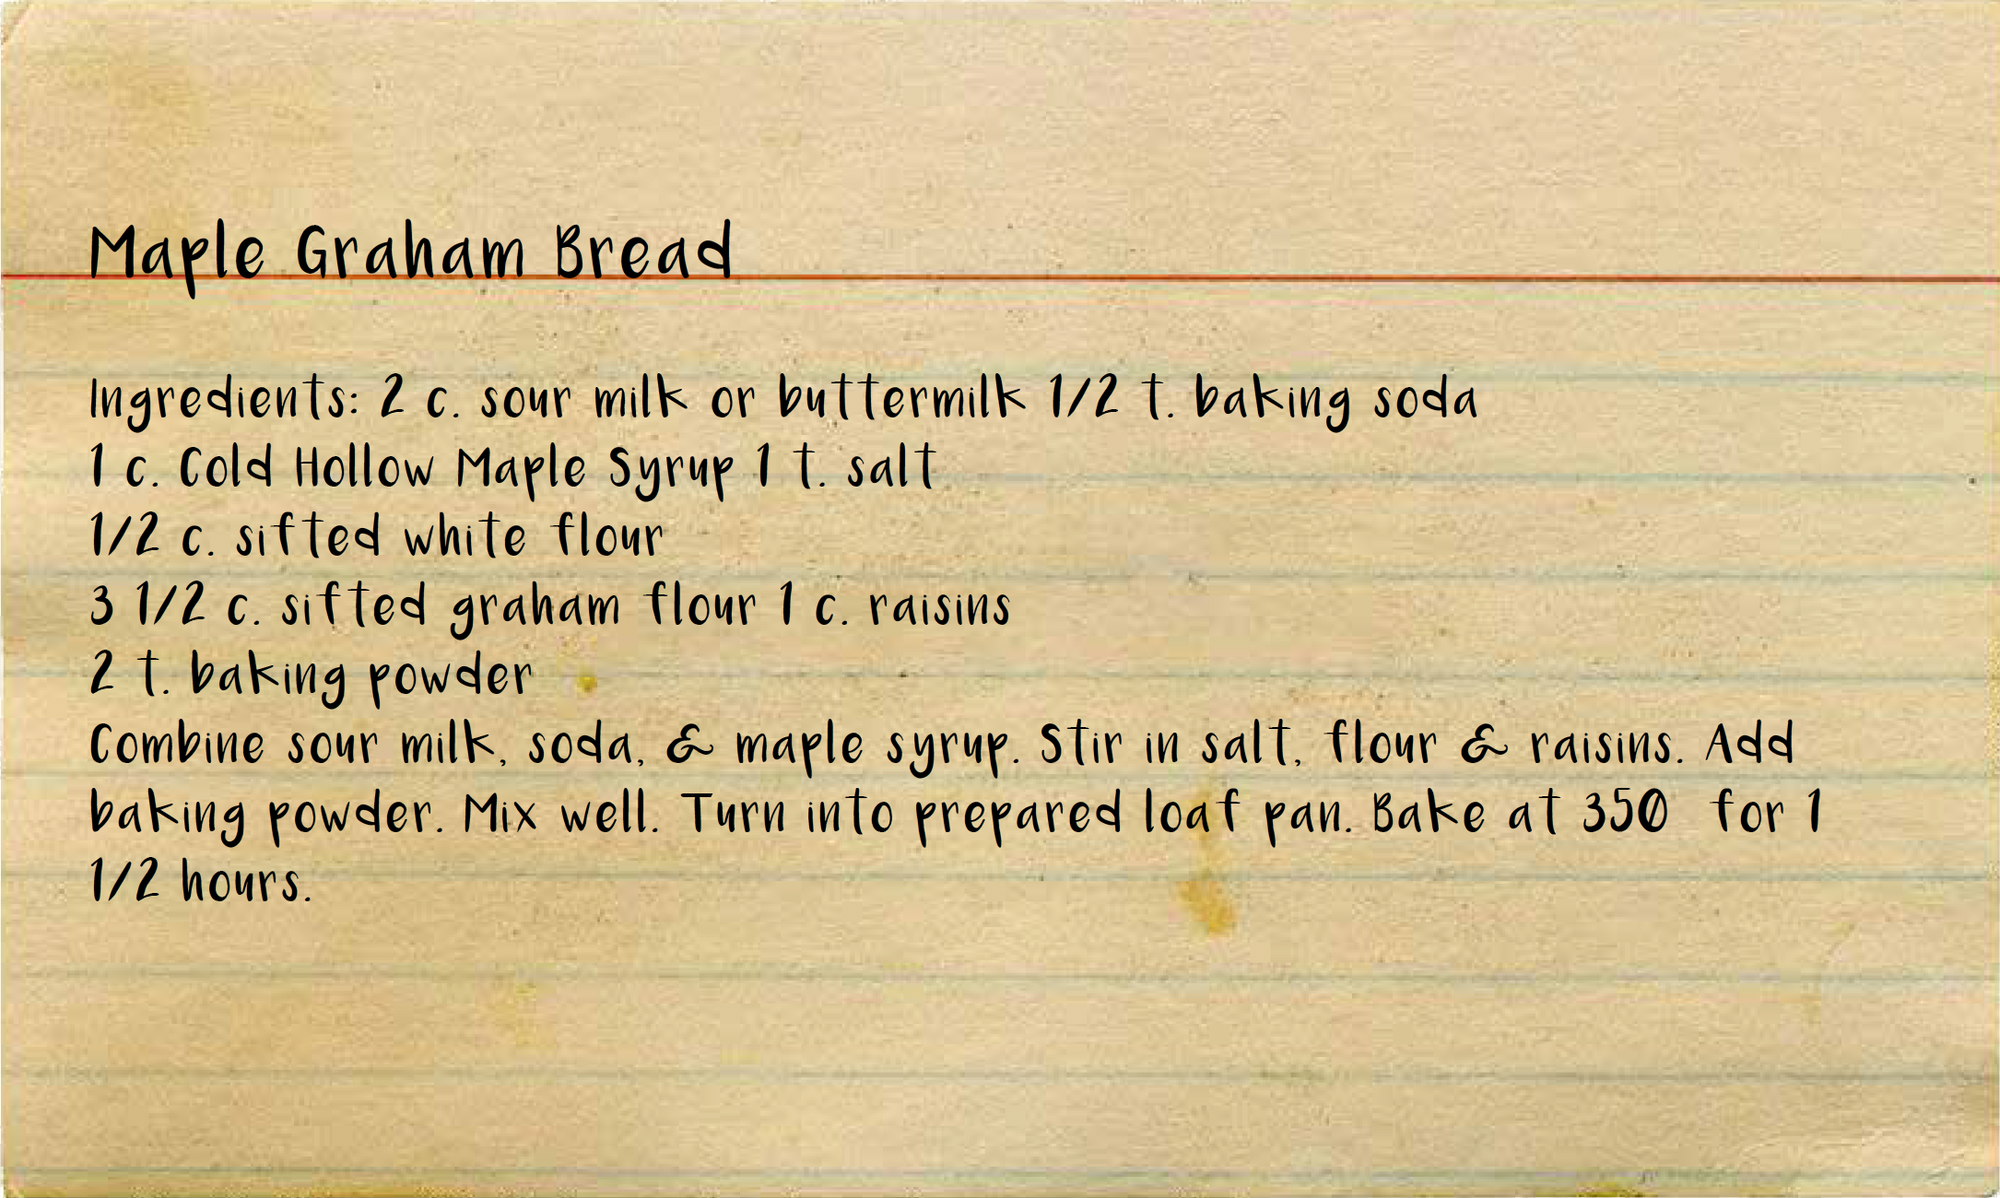 Maple Graham Bread
Ingredients: 2 c. sour milk or buttermilk 1/2 t. baking soda
1 c. Cold Hollow Maple Syrup 1 t. salt
1/2 c. sifted white flour
3 1/2 c. sifted graham flour 1 c. raisins
2 t. baking powder
Combine sour milk, soda, & maple syrup. Stir in salt, flour & raisins. Add
baking powder. Mix well. Turn into prepared loaf pan. Bake at 350 for 1
1/2 hours.